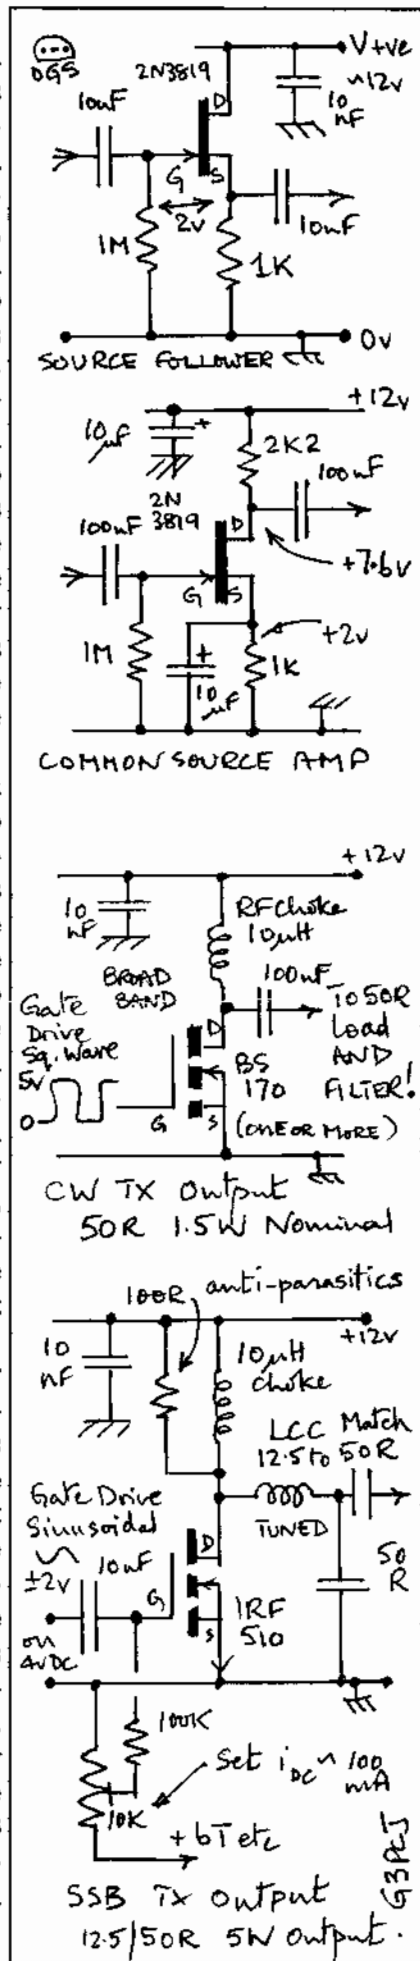 V+ve
2N3819
~12v
DGS
10nF
D
10
nF
G
S
2v
10nF
1M
1K
0v
SOURCE FOLLOWER
+12v
10
µF
+
2K2
100nF
2N
3819
D
100nF
+7.6v
G
S
+2v
1M
+
10
µF
1K
COMMON SOURCE AMP
+12v
10
nF
RF Choke
10µH
BROAD
BAND
100nF
Gate
Drive
Sq. Wave
D
To 50R
Load
AND
FILTER!
5v
0
G
S
BS
170
(ONE OR MORE)
CW TX Output
50R 1.5W Nominal
100R
anti-parasitics
+12v
10
nF
10µH
choke
LCC Match
12.5 to 50R
Gate Drive
Sinusoidal
TUNED
±2v
10nF
D
G
S
IRF
510
50
R
on
4vDC
100K
Set iDC ~ 100
mA
10K
+6T etc
G3PCJ
SSB TX Output
12.5/50R 5W Output.